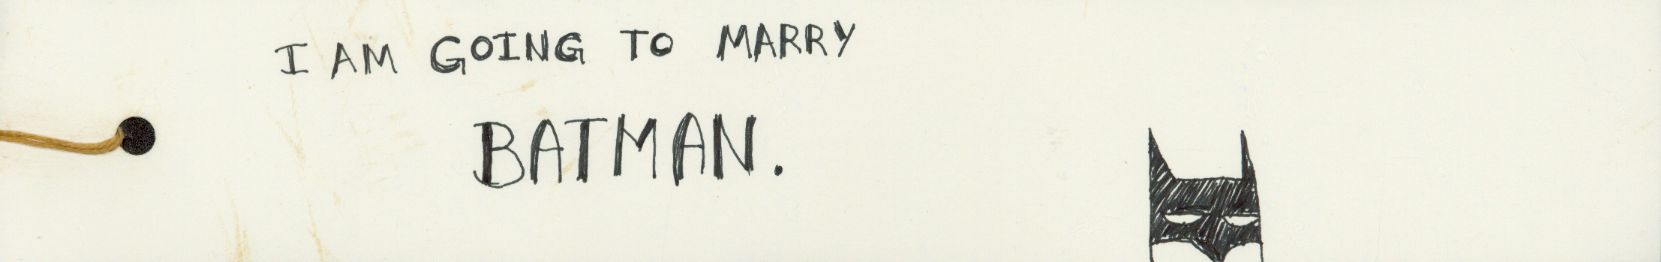 I AM GOING TO MARRY
BATMAN.